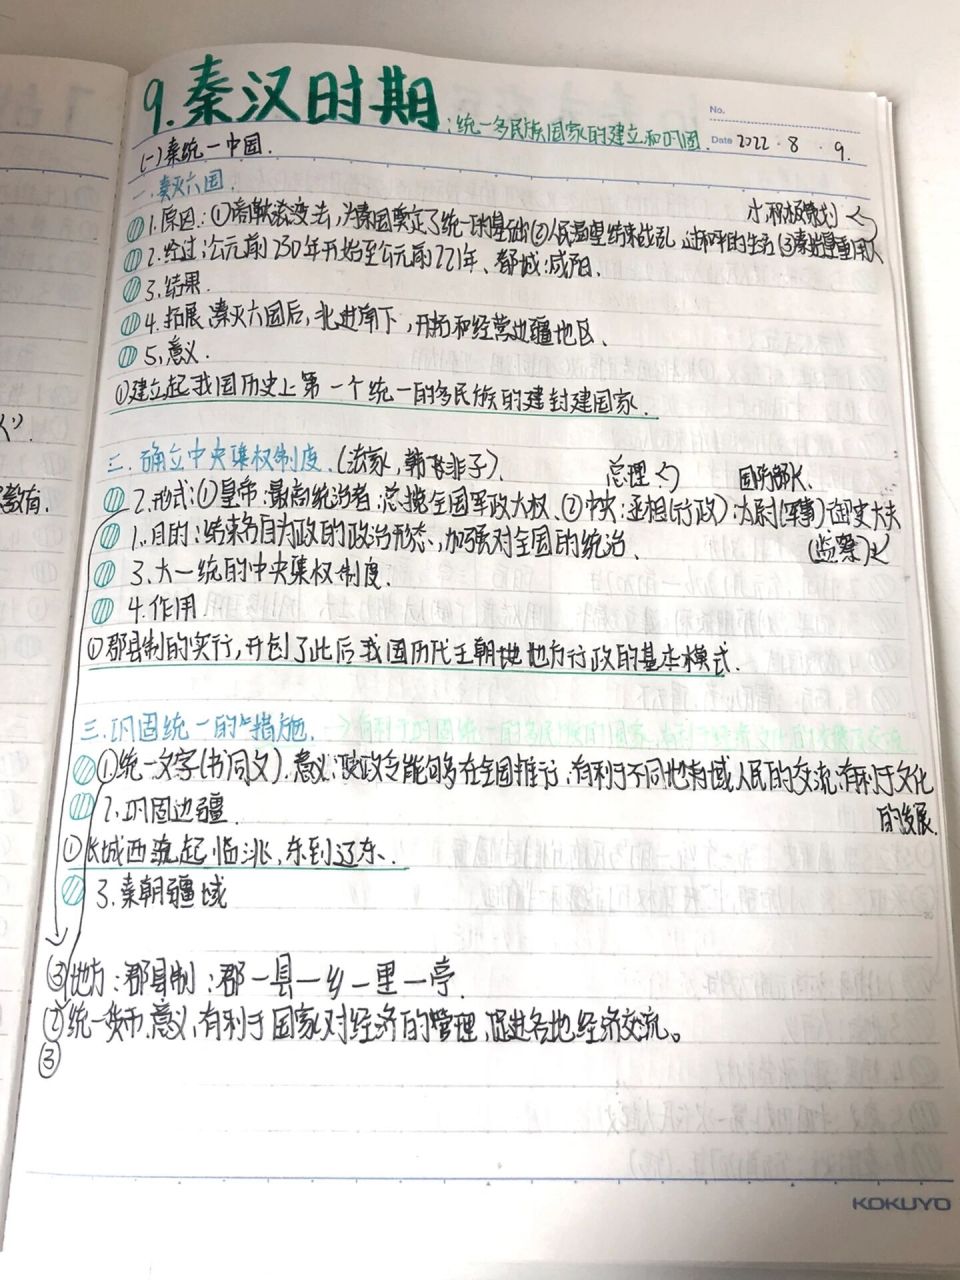 9.秦汉时期:统一多民族国家的建立和巩固.
No.
Date 2022.8.9.
(一)秦统一中国.
一.秦灭六国.
1.原因:①商鞅变法,为秦国奠定了统一的基础②人民渴望结束战乱,过和平的生活③秦
水,积极策划
2.经过:公元前230年开始至公元前221年、都城:咸阳.
3.结果.
4.拓展、秦灭六国后,北进南下,开拓和经营边疆地区、
5.意义.
①建立起我国历史上第一个统一的多民族的建封建国家.
二.确立中央集权制度.(法家,韩非子).
总理
国防部长.
2.形式:①皇帝:最高统治者,总揽全国军政大权、②中央:丞相(行政):太尉(军事)御史大夫
(监察)
1.目的:结束各自为政的政治形态,加强对全国的统治、
3.大一统的中央集权制度.
4.作用
①郡县制的实行,开创了此后我国历代王朝地地方行政的基本模式.
三.巩固统一的措施.
①统一文字(书同文).意义:使政令能够多在全国推行,有利于不同地域人民的交流,有利于文化
的发展.
2.巩固边疆.
①长城西起临洮,东到辽东.
3.秦朝疆域
③地方:郡县制:郡一县一乡一里一亭.
②统一货币,意义,有利于国家对经济的管理,促进各地经济交流。
③
义”.
教育.
KOKUYO